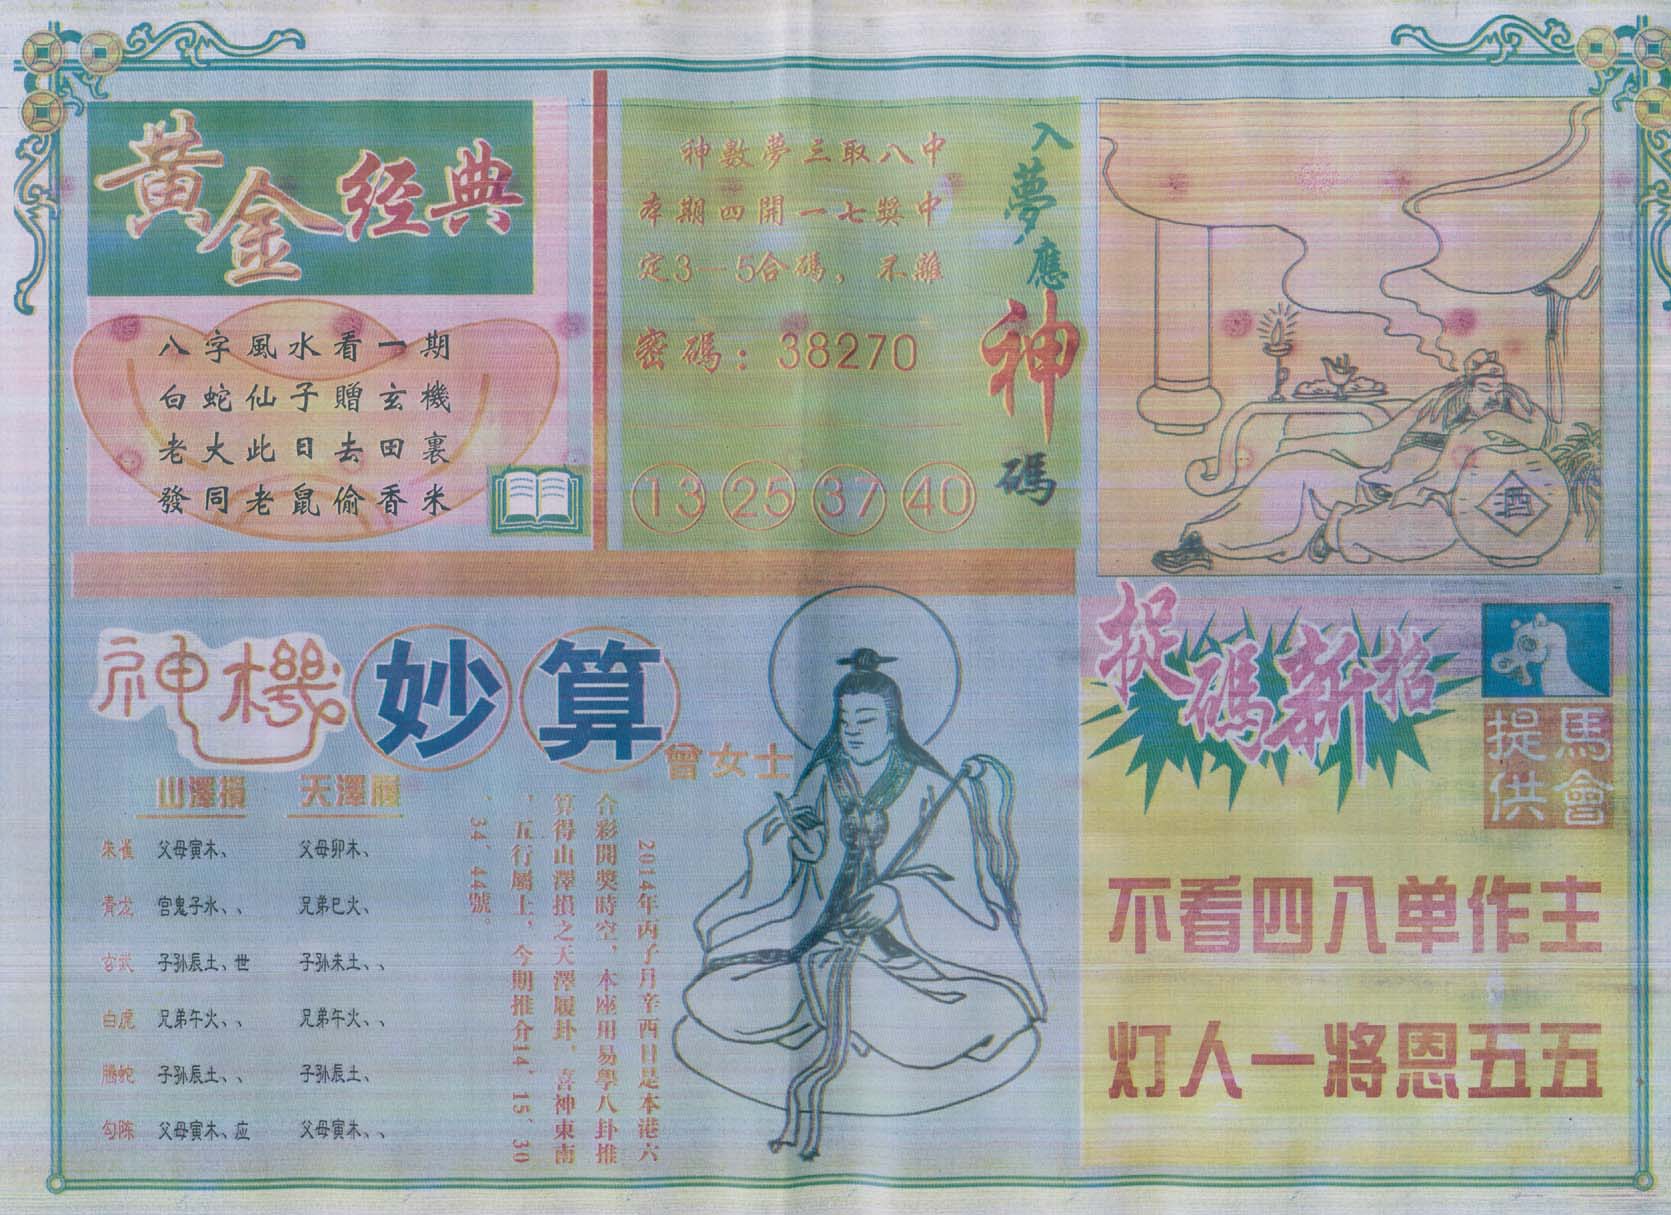 黃金经典
八字風水看一期
白蛇仙子贈玄機
老大此日去田裏
發同老鼠偷香米
神數夢三取八中
本期四開一七獎中
定3—5合碼，不離
密碼：38270
13 25 37 40
入夢應神碼
酒
神機妙算
曾女士
山澤損 天澤履
朱雀 父母寅木、 父母卯木、
青龙 宫鬼子水、、 兄弟巳火、
玄武 子孙辰土、世 子孙未土、、
白虎 兄弟午火、、 兄弟午火、、
腾蛇 子孙辰土、、 子孙辰土、
勾陈 父母寅木、应 父母寅木、、
2014年丙子月辛酉日是本港六
合彩開獎時空，本座用易學八卦推
算得山澤損之天澤履卦，喜神東南
，五行屬土，今期推介14、15、30
、34、44號。
捉碼新招
馬會提供
不看四八单作主
灯人一將恩五五